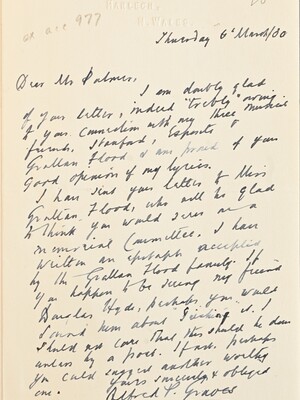 HARLECH,
N. WALES.
on acc 977
Thursday 6th March/30
Dear Mr Palmer,
I am doubly glad
of your letter, indeed "trebly" owing
to your connection with my three musical
friends, Stanford, Esposito &
Grattan Flood & am proud of your
Good opinion of my lyrics.
I have sent your letter to Miss
Grattan Flood, who will be glad
I think you would serve on a
Memorial Committee. I have
written an epitaph accepted
by the Grattan Flood family. If
you happen to be seeing my friend
Douglas Hyde, perhaps you would
sound him about it. I
should not care that this should be done
unless by a poet. If not, perhaps
you could suggest another worthy
one.
Yours sincerely & obliged
Alfred P. Graves